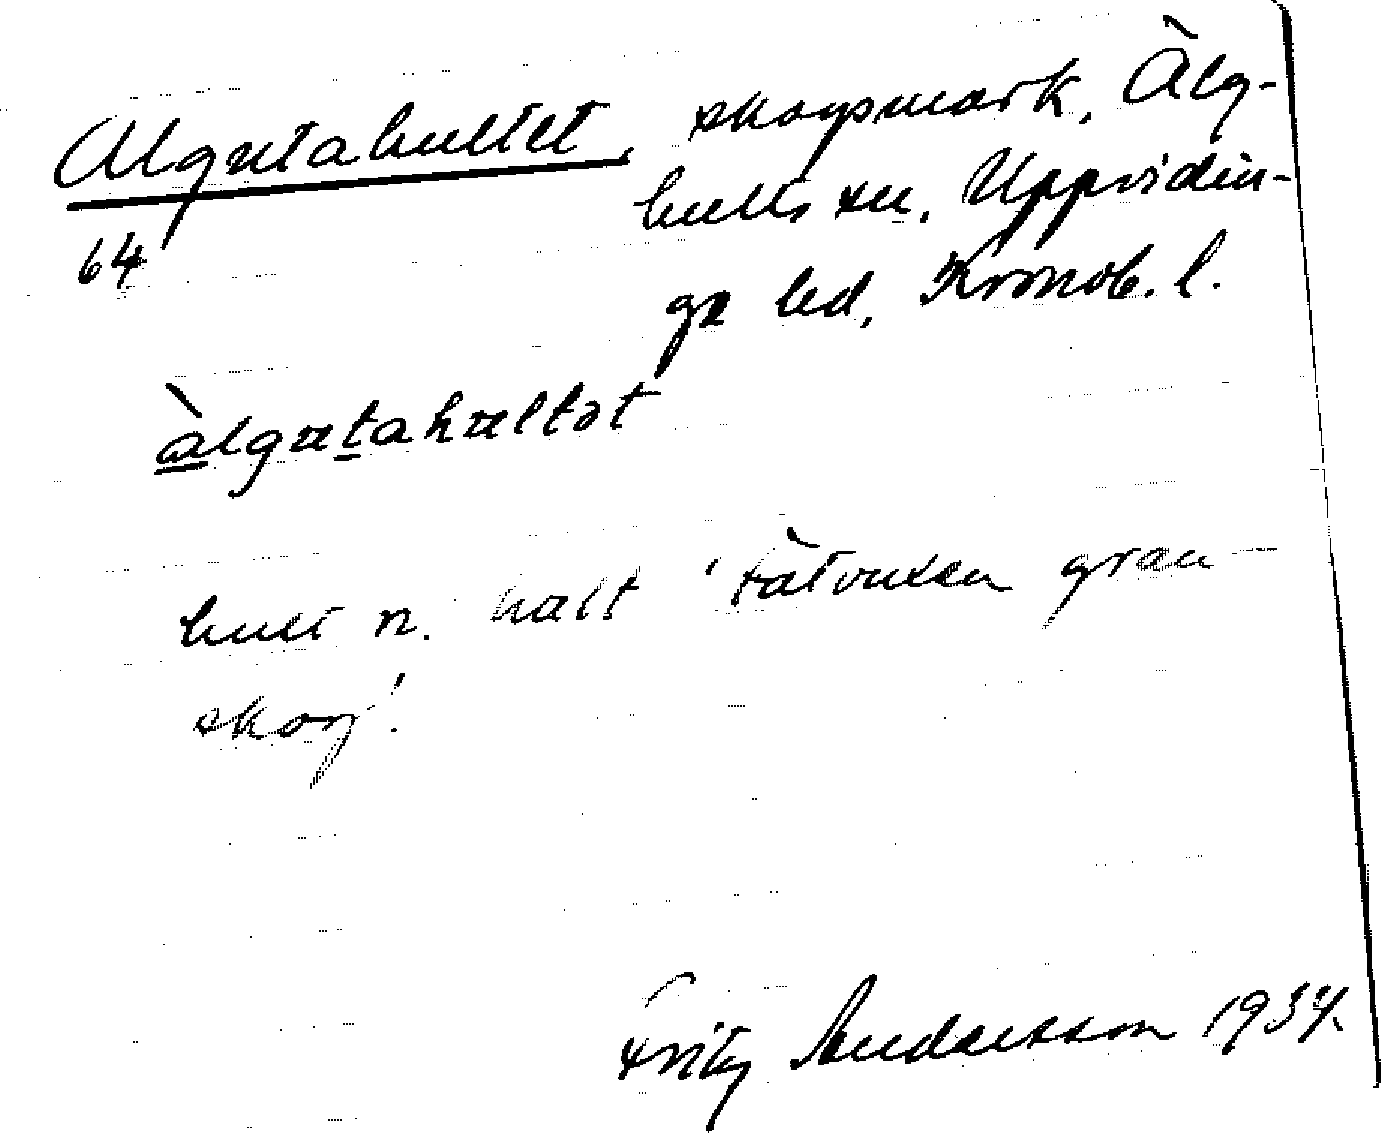 Algutahultet, skogsmark, Älg-
64 hults sn, Uppvidin-
ge hd, Kronob. l.
àlgutahultət
hult n. hult 'tätvuxen gran-
skog'.
Fritz Andersson 1934.